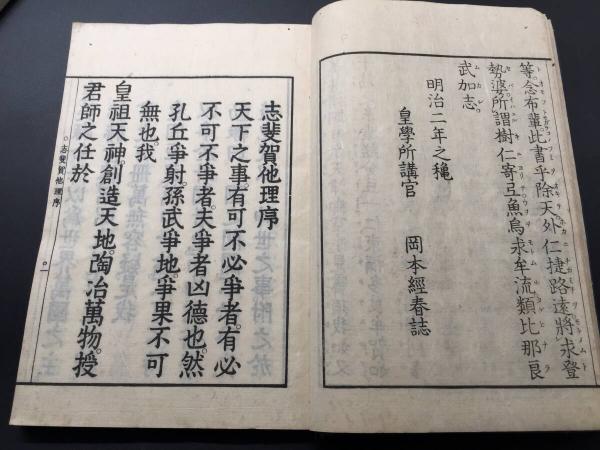 等念布輩此書乎除天外仁捷路遠將求登
勢婆所謂樹仁寄弖魚鳥求牟流類比那良
武加志
明治二年之穐
皇學所講官 岡本經春誌
志斐賀他理序
天下之事。有可不必爭者。有必
不可不爭者。夫爭者凶德也。然
孔丘爭射。孫武爭地。爭果不可
無也。我
皇祖天神。創造天地。陶冶萬物。授
君師之任於
志斐賀他理序